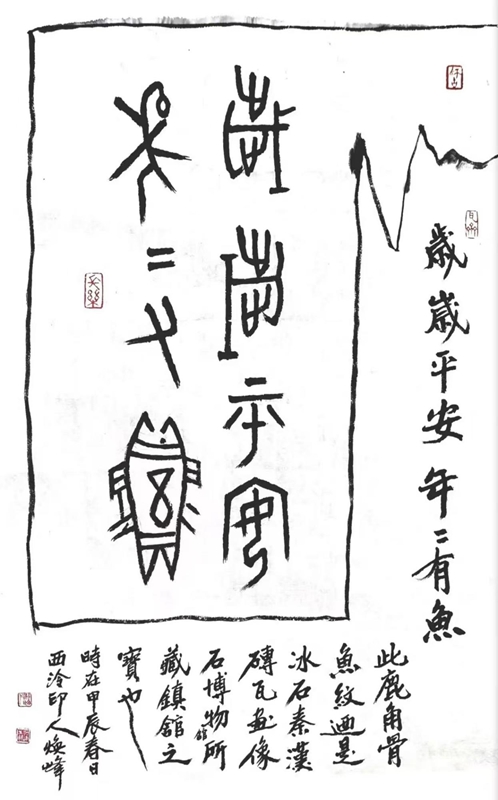 歲歲平安
年二又魚
歲歲平安 年二有魚
此鹿角骨
魚紋迺是
冰石秦漢
磚瓦畫像
石博物館所
藏鎮舘之
寶也
時在甲辰春日
西泠印人煥峰